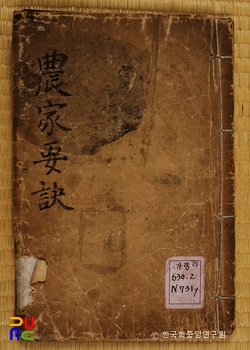 農家要訣
가람 古
630.2
N731y
© 한국학중앙연구원